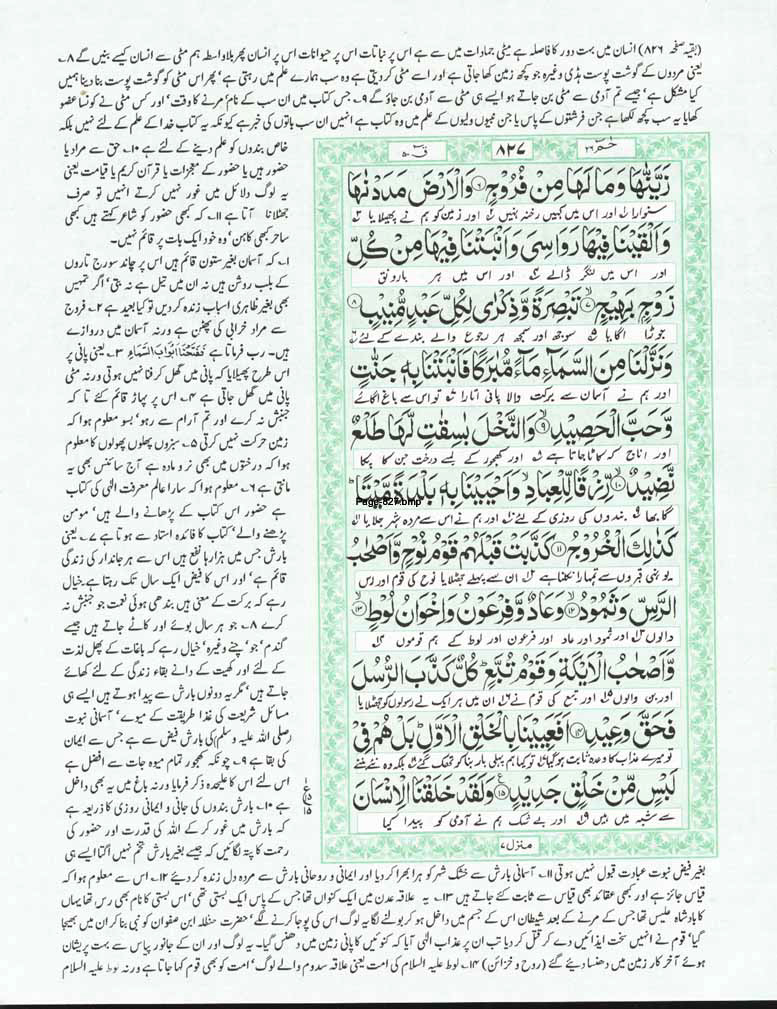 (بقیہ صفحہ ۸۲۶) انسان میں بہت دور کا فاصلہ ہے مٹی جمادات میں سے ہے اس پر نباتات اس پر حیوانات اس پر انسان پھر بلاواسطہ ہم مٹی سے انسان کیسے بنیں گے ۸۔
یعنی مردوں کے گوشت پوست ہڈی وغیرہ جو کچھ زمین کھا جاتی ہے اور اسے مٹی کر دیتی ہے وہ سب ہمارے علم میں رہتی ہے، پھر اس مٹی کو گوشت پوست بنا دینا ہمیں
کیا مشکل ہے، جیسے تم آدمی سے مٹی بن جاتے ہو ایسے ہی مٹی سے آدمی بن جاؤ گے ۹۔ جس کتاب میں ان سب کے نام، مرنے کا وقت، اور کس مٹی نے کونسا عضو
کھایا یہ سب کچھ لکھا ہے جن فرشتوں کے پاس یا جن نبیوں ولیوں کے علم میں وہ کتاب ہے انہیں ان سب باتوں کی خبر ہے کیونکہ یہ کتاب خدا کے علم کے لئے نہیں بلکہ
خاص بندوں کو علم دینے کے لئے ہے ۱۰۔ حق سے مراد یا
حضور ہیں یا حضور کے معجزات یا قرآن کریم یا قیامت یعنی
یہ لوگ دلائل میں غور نہیں کرتے انہیں تو صرف
جھٹلانا آتا ہے ۱۱۔ کہ کبھی حضور کو شاعر کہتے ہیں کبھی
ساحر کبھی کاہن، وہ خود ایک بات پر قائم نہیں۔
۱۔ کہ آسمان بغیر ستون قائم ہیں اس پر چاند سورج تاروں
کے بلب روشن ہیں نہ ان میں تیل ہے نہ بتی، اگر تمہیں
بھی بغیر ظاہری اسباب زندہ کر دیں تو کیا بعید ہے ۲۔ فروج
سے مراد خرابی کی پھٹن ہے ورنہ آسمان میں دروازے
ہیں۔ رب فرماتا ہے فَفَتَحْنَا اَبْوَابَ السَّمَاءِ ۳۔ یعنی پانی پر
اس طرح پھیلایا کہ پانی میں گھل کر فنا نہیں ہوتی ورنہ مٹی
پانی میں گھل جاتی ہے ۴۔ اس پر پہاڑ قائم کئے تا کہ
جنبش نہ کرے اور تم آرام سے رہو، بسو معلوم ہوا کہ
زمین حرکت نہیں کرتی ۵۔ سبزوں پھلوں پھولوں کا معلوم
ہوا کہ درختوں میں بھی نر و مادہ ہے آج سائنس بھی یہ
مانتی ہے ۶۔ معلوم ہوا کہ سارا عالم معرفت الٰہی کی کتاب
ہے حضور اس کتاب کے پڑھانے والے ہیں، مومن
پڑھنے والے، کتاب کا فائدہ استاد سے ہوتا ہے ۷۔ یعنی
بارش جس میں ہزارہا نفع ہیں اس سے ہر جاندار کی زندگی
قائم ہے، اور اس کا فیض ایک سال تک رہتا ہے خیال
رہے کہ برکت کے معنی ہیں بندھی ہوئی نعمت جو جنبش نہ
کرے ۸۔ جو ہر سال بوئے اور کاٹے جاتے ہیں جیسے
گندم، جو، چنے وغیرہ، خیال رہے کہ باغات کے پھل لذت
کے لئے اور کھیت کے دانے بقاء زندگی کے لئے کھائے
جاتے ہیں، مگر یہ دونوں بارش سے پیدا ہوتے ہیں ایسے ہی
مسائل شریعت کی غذا طریقت کے میوے، آسمانی نبوت
(صلی اللہ علیہ وسلم) کی بارش فیض سے ہے جس سے ایمان
کی بقا ہے ۹۔ چونکہ کھجور تمام میوہ جات سے افضل ہے
اس لئے اس کا علیحدہ ذکر فرمایا ورنہ باغ میں یہ بھی داخل
ہے ۱۰۔ بارش بندوں کی جانی و ایمانی روزی کا ذریعہ ہے
کہ بارش میں غور کر کے اللہ کی قدرت اور حضور کی
رحمت کا پتہ لگائیں کہ جیسے بغیر بارش تخم نہیں اگتا ایسے ہی
حٰم ۲۶
۸۲۷
ق ۵۰
زَيَّنّٰهَا وَمَا لَهَا مِنْ فُرُوْجٍ ۝۶ وَالْاَرْضَ مَدَدْنٰهَا
سنوارا اور اس میں کہیں رخنہ نہیں اور زمین کو ہم نے پھیلایا
وَاَلْقَيْنَا فِيْهَا رَوَاسِيَ وَاَنْۢبَتْنَا فِيْهَا مِنْ كُلِّ
اور اس میں لنگر ڈالے اور اس میں ہر بارونق
زَوْجٍۭ بَهِيْجٍ ۝۷ تَبْصِرَةً وَّذِكْرٰى لِكُلِّ عَبْدٍ مُّنِيْبٍ ۝۸
جوڑا اگایا سوجھ اور سمجھ ہر رجوع والے بندے کے لئے
وَنَزَّلْنَا مِنَ السَّمَآءِ مَآءً مُّبٰرَكًا فَاَنْۢبَتْنَا بِهٖ جَنّٰتٍ
اور ہم نے آسمان سے برکت والا پانی اتارا تو اس سے باغ اگائے
وَّحَبَّ الْحَصِيْدِ ۝۹ وَالنَّخْلَ بٰسِقٰتٍ لَّهَا طَلْعٌ
اور اناج کہ کاٹا جاتا ہے اور کھجور کے لمبے درخت جن کا پکا
نَّضِيْدٌ ۝۱۰ رِّزْقًا لِّلْعِبَادِ وَاَحْيَيْنَا بِهٖ بَلْدَةً مَّيْتًا
Page-827.bmp
گابھا بندوں کی روزی کے لئے اور ہم نے اس سے مردہ شہر جلایا
كَذٰلِكَ الْخُرُوْجُ ۝۱۱ كَذَّبَتْ قَبْلَهُمْ قَوْمُ نُوْحٍ وَّاَصْحٰبُ
یوں ہی قبروں سے تمہارا نکلنا ہے ان سے پہلے جھٹلایا نوح کی قوم اور رس
الرَّسِّ وَثَمُوْدُ ۝۱۲ وَعَادٌ وَّفِرْعَوْنُ وَاِخْوَانُ لُوْطٍ ۝۱۳
والوں اور ثمود اور عاد اور فرعون اور لوط کے ہم قوموں
وَّاَصْحٰبُ الْاَيْكَةِ وَقَوْمُ تُبَّعٍ كُلٌّ كَذَّبَ الرُّسُلَ
اور بن والوں اور تبع کی قوم نے ان میں ہر ایک نے رسولوں کو جھٹلایا
فَحَقَّ وَعِيْدِ ۝۱۴ اَفَعَيِيْنَا بِالْخَلْقِ الْاَوَّلِ بَلْ هُمْ فِيْ
تو میرے عذاب کا وعدہ ثابت ہو گیا تو کیا ہم پہلی بار بنا کر تھک گئے بلکہ وہ نئے بننے
لَبْسٍ مِّنْ خَلْقٍ جَدِيْدٍ ۝۱۵ وَلَقَدْ خَلَقْنَا الْاِنْسَانَ
سے شبہ میں ہیں اور بے شک ہم نے آدمی کو پیدا کیا
ع ۱۵
منزل ۷
بغیر فیض نبوت عبادت قبول نہیں ہوتی ۱۱۔ آسمانی بارش سے خشک شہر کو ہرا بھرا کر دیا اور ایمانی و روحانی بارش سے مردہ دل زندہ کر دیئے ۱۲۔ اس سے معلوم ہوا کہ
قیاس جائز ہے اور کبھی عقائد بھی قیاس سے ثابت کئے جاتے ہیں ۱۳۔ یہ علاقہ عدن میں ایک کنواں تھا جس کے پاس ایک بستی تھی، اس بستی کا نام بھی رس تھا یہاں
کا بادشاہ علیس تھا جس کے مرنے کے بعد شیطان اس کے جسم میں داخل ہو کر بولنے لگا یہ لوگ اس کی پوجا کرنے لگے، حضرت حنظلہ ابن صفوان کو نبی بنا کر ان میں بھیجا
گیا، قوم نے انہیں سخت ایذائیں دے کر قتل کر دیا تب ان پر عذاب الٰہی آیا کہ کنوئیں کا پانی زمین میں دھنس گیا۔ یہ لوگ اور ان کے جانور پیاس سے بہت پریشان
ہوئے آخر کار زمین میں دھنسا دیئے گئے (روح و خزائن) ۱۴۔ لوط علیہ السلام کی امت یعنی علاقہ سدوم والے لوگ، امت کو بھی قوم کہا جاتا ہے ورنہ لوط علیہ السلام